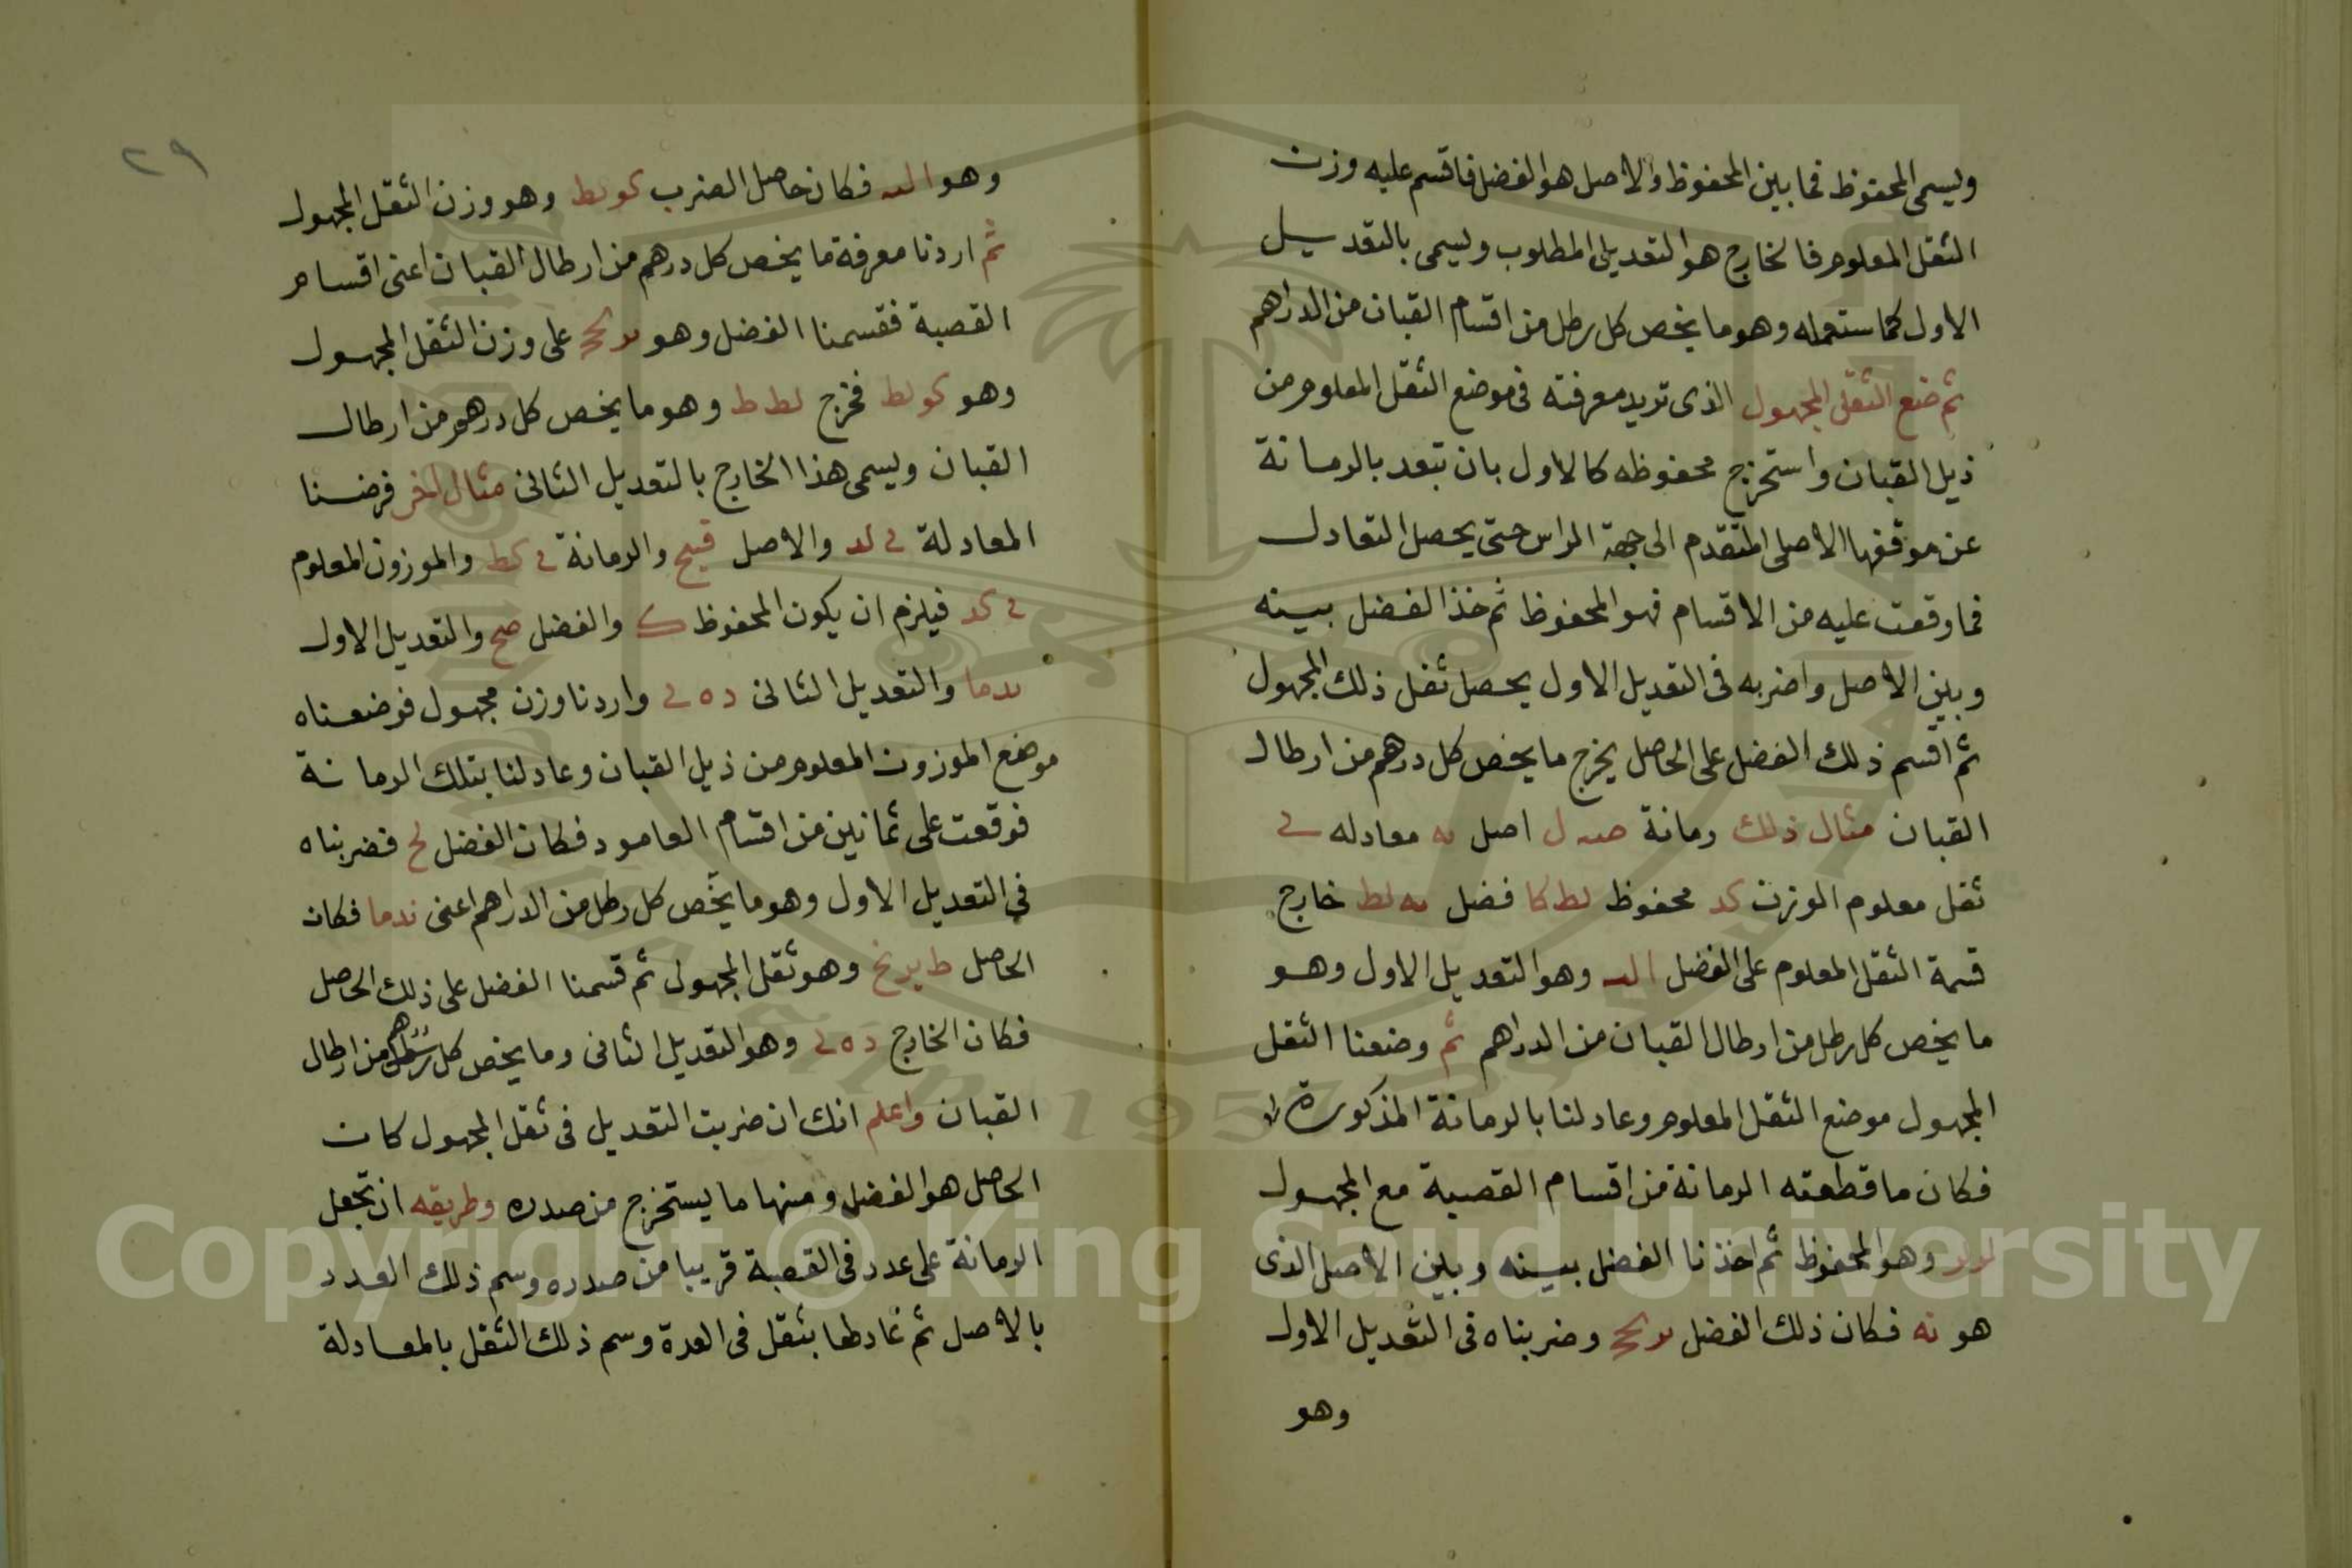 ويسمى المحفوظ فما بين المحفوظ والاصل هو الفضل فاقسم عليه وزن
الثقل المعلوم فالخارج هو التعديل المطلوب ويسمى بالتعديل
الاول كما ستعمله وهو ما يخص كل رطل من اقسام القبان من الدراهم
ثم ضع الثقل المجهول الذى تريد معرفته فى موضع الثقل المعلوم من
ذيل القبان واستخرج محفوظه كالاول بان تبعد بالرمانة
عن موقفها الاصلى المتقدم الى جهة الراس حتى يحصل التعادل
فما وقعت عليه من الاقسام فهو المحفوظ ثم خذ الفضل بينه
وبين الاصل واضربه فى التعديل الاول يحصل ثقل ذلك المجهول
ثم اقسم ذلك الفضل على الحاصل يخرج ما يخص كل درهم من ارطال
القبان مثال ذلك رمانة اصل معادله
ثقل معلوم الوزن كد محفوظ لط كا فضل خارج
قسمة الثقل المعلوم على الفضل وهو التعديل الاول وهو
ما يخص كل رطل من ارطال القبان من الدراهم ثم وضعنا الثقل
المجهول موضع الثقل المعلوم وعادلنا بالرمانة المذكورة
فكان ما قطعته الرمانة من اقسام القصبة مع المجهول
وهو المحفوظ ثم اخذنا الفضل بينه وبين الاصل الذى
هو نه فكان ذلك الفضل وضربناه فى التعديل الاول
وهو
٢٩
وهو فكان حاصل الضرب كو لط وهو وزن الثقل المجهول
ثم اردنا معرفة ما يخص كل درهم من ارطال القبان اعنى اقسام
القصبة فقسمنا الفضل وهو على وزن الثقل المجهول
وهو كو لط فخرج لط ط وهو ما يخص كل درهم من ارطال
القبان ويسمى هذا الخارج بالتعديل الثانى مثال اخر فرضنا
المعادلة والاصل قيح والرمانة والموزون المعلوم
فيلزم ان يكون المحفوظ ك والفضل صح والتعديل الاول
ندما والتعديل الثانى واردنا وزن مجهول فوضعناه
موضع الموزون المعلوم من ذيل القبان وعادلنا بتلك الرمانة
فوقعت على ثمانين من اقسام العامود فكان الفضل لح فضربناه
فى التعديل الاول وهو ما يخص كل رطل من الدراهم اعنى ندما فكان
الحاصل وهو ثقل المجهول ثم قسمنا الفضل على ذلك الحاصل
فكان الخارج وهو التعديل الثانى وما يخص كل من ارطال
القبان واعلم انك ان ضربت التعديل فى ثقل المجهول كان
الحاصل هو الفضل ومنها ما يستخرج من صدره وطريقه ان تجعل
الرمانة على عدد فى القصبة قريبا من صدره وسم ذلك العدد
بالاصل ثم عادلها بثقل فى العدة وسم ذلك الثقل بالمعادلة
Copyright © King Saud University
1957